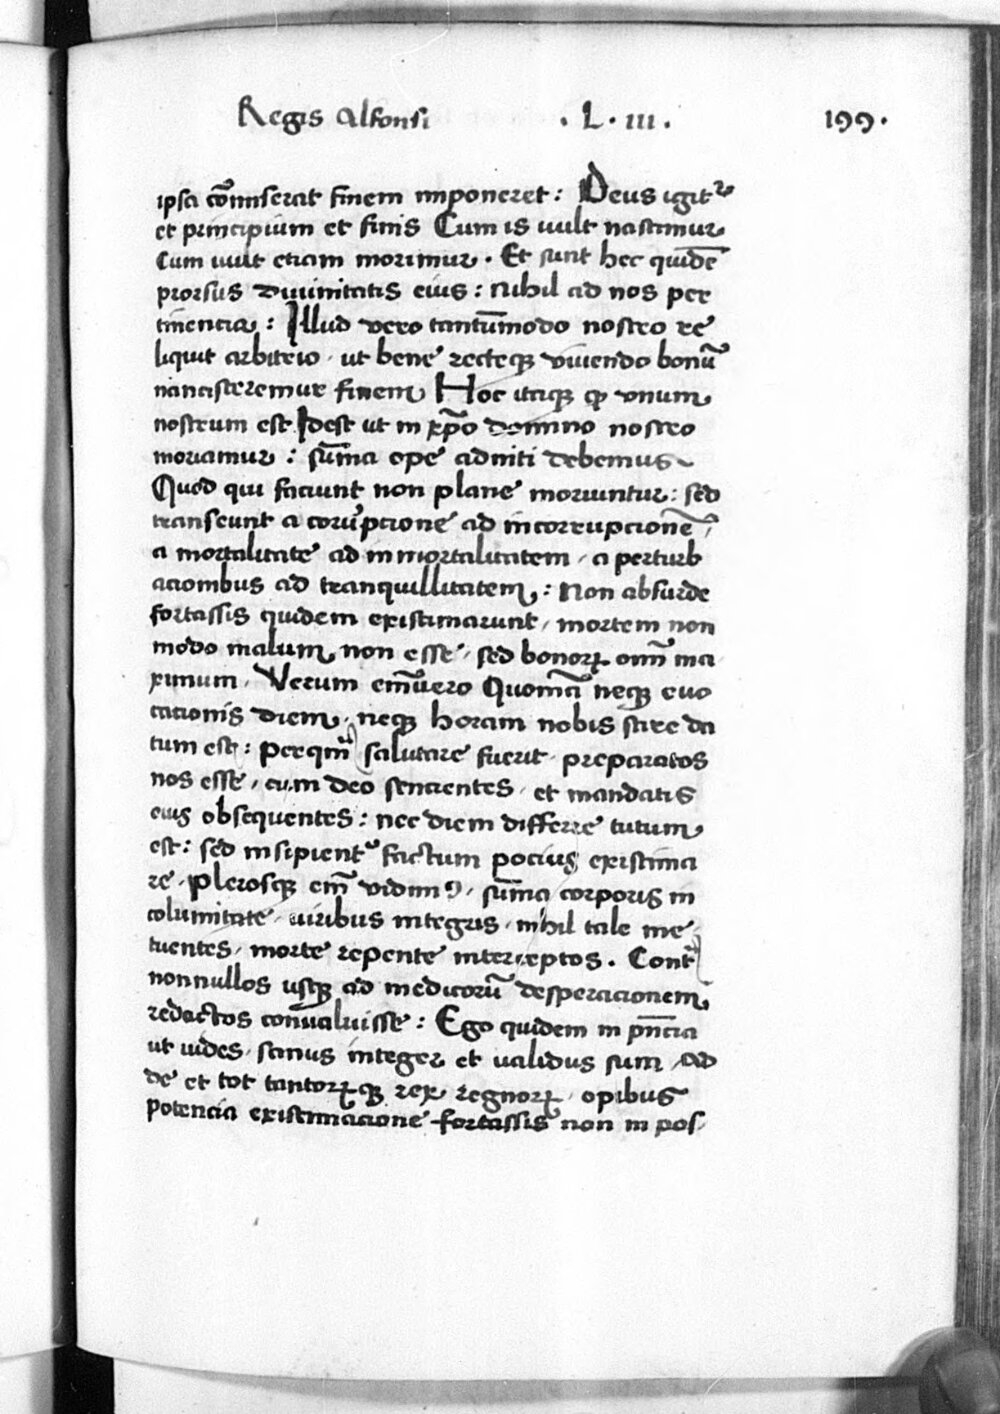 Regis Alfonsi . L . III . 199 .
ipsa cōmiserat finem imponeret : Deus igit᷑
et principium et finis Cum is uult nascimur
Cum uult etiam morimur . Et sunt hec quidē
prorsus diuinitatis eius : nihil ad nos per
tinencia : Illud vero tantūmodo nostro re
liquit arbitrio . ut bene recteqꝫ viuendo bonū
nancisceremur finem Hoc itaqꝫ qꝫ vnum
nostrum est Idest ut in xp̄o domino nostro
moriamur : sūma ope adniti debemus
Quod qui faciunt non plane moriuntur : sed
transeunt a corrupcione ad incorrupcionē /
a mortalitate ad inmortalitatem / a perturb
acionibus ad tranquillitatem : Non absurde
fortassis quidem existimarunt / mortem non
modo malum non esse / sed bonorꝝ om̄ ma
ximum . Verum em̄uero Quoniā neqꝫ euo
cationis diem / neqꝫ horam nobis scire da
tum est : perqm̄ salutare fuerit . preparatos
nos esse / cum deo sencientes / et mandatis
eius obsequentes : nec diem differre tutum
est : sed insipient᷑ factum pocius existima
re . plerosqꝫ em̄ vidimꝰ / sūma corporis in
columitate / uiribus integris / nihil tale me
tuentes / morte repente interceptos . Contᷓ
nonnullos usqꝫ ad medicorū desperacionem
redactos conualuisse : Ego quidem in pn̄cia
ut uides / sanus integer et ualidus sum / Ad
de et tot tantorꝝqꝫ rex regnorꝝ / opibus
potencia existimacione fortassis non in pos